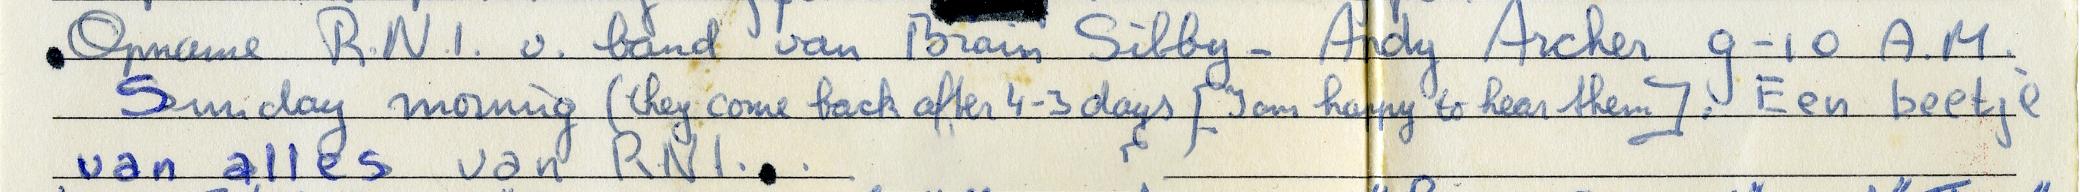 Opname R.N.I. v. band van Brain Silby - Andy Archer 9-10 A.M.
Sunday morning (they come back after 4-3 days [I am happy to hear them]: Een beetje
van alles van RNI..